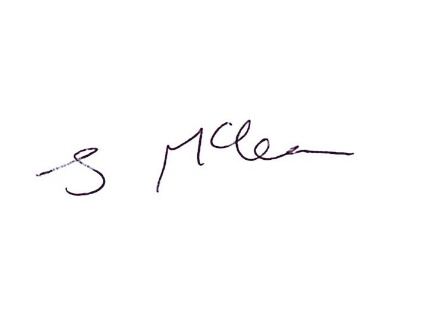 S McLean